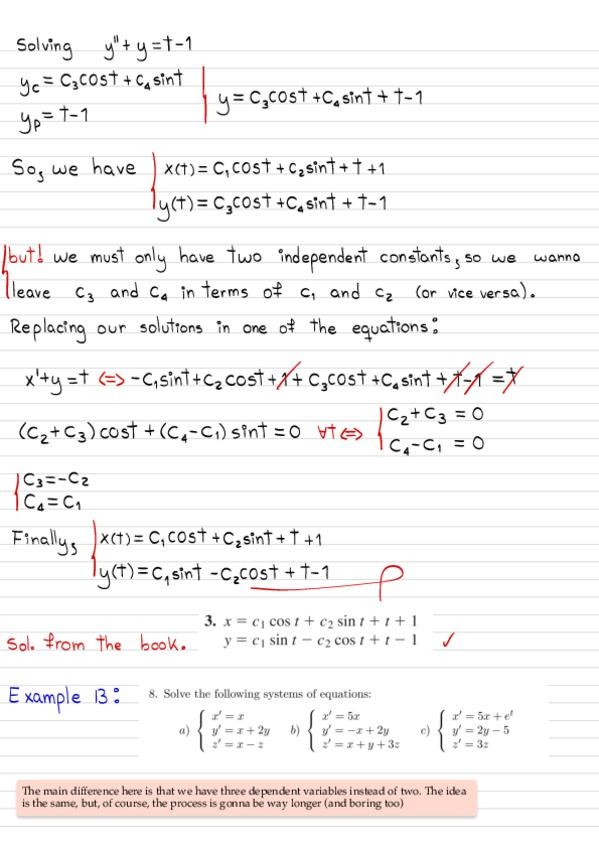 Solving y''+y=t-1
yc = C₃cost + C₄sint
yp = t-1
y = C₃cost + C₄sint + t-1
So, we have
x(t) = C₁cost + C₂sint + t + 1
y(t) = C₃cost + C₄sint + t-1
but! we must only have two independent constants, so we wanna
leave C₃ and C₄ in terms of C₁ and C₂ (or vice versa).
Replacing our solutions in one of the equations:
x'+y=t <=> -C₁sint + C₂cost + 1 + C₃cost + C₄sint + t-1 = t
(C₂+C₃)cost + (C₄-C₁)sint = 0 ∀t <=>
C₂+C₃ = 0
C₄-C₁ = 0
C₃=-C₂
C₄=C₁
Finally,
x(t) = C₁cost + C₂sint + t + 1
y(t) = C₁sint - C₂cost + t-1
3. x = c₁ cos t + c₂ sin t + t + 1
y = c₁ sin t − c₂ cos t + t − 1 ✓
Sol. from the book.
Example 13:
8. Solve the following systems of equations:
a) { x' = x
y' = x + 2y
z' = x − z
b) { x' = 5x
y' = −x + 2y
z' = x + y + 3z
c) { x' = 5x + eᵗ
y' = 2y − 5
z' = 3z
The main difference here is that we have three dependent variables instead of two. The idea
is the same, but, of course, the process is gonna be way longer (and boring too)